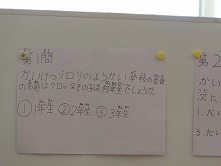 第1問
かいけつゾロリのようかい学校の先生
の名前はクロッなその子は何年生でしょうか。
①1年生 ②2年生 ③3年生
第2
かい
次に
1.だ
3.だい